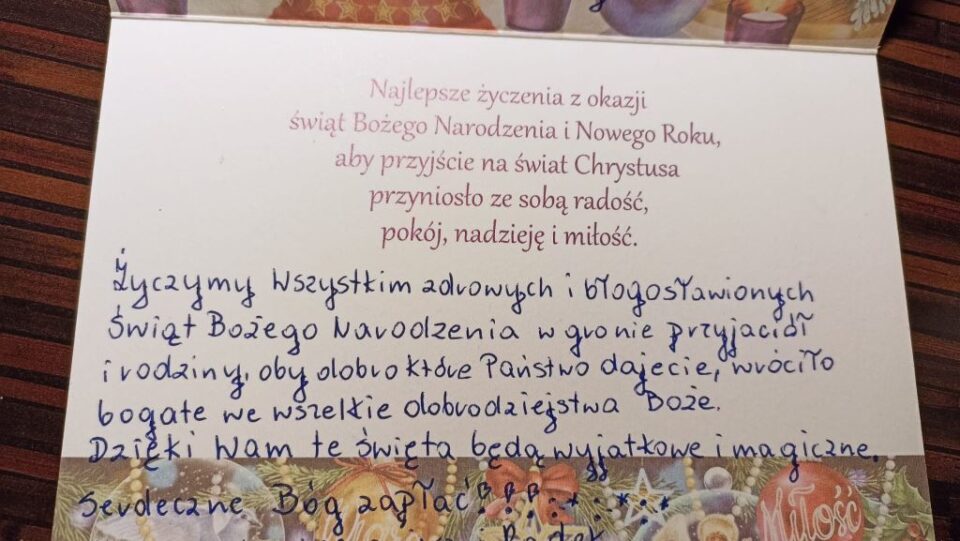 Najlepsze życzenia z okazji
świąt Bożego Narodzenia i Nowego Roku,
aby przyjście na świat Chrystusa
przyniosło ze sobą radość,
pokój, nadzieję i miłość.
Życzymy Wszystkim zdrowych i błogosławionych
Świąt Bożego Narodzenia w gronie przyjaciół
i rodziny, oby dobro które Państwo dajecie, wróciło
bogate we wszelkie dobrodziejstwa Boże.
Dzięki Wam te święta będą wyjątkowe i magiczne.
Serdeczne Bóg zapłać
Miłość